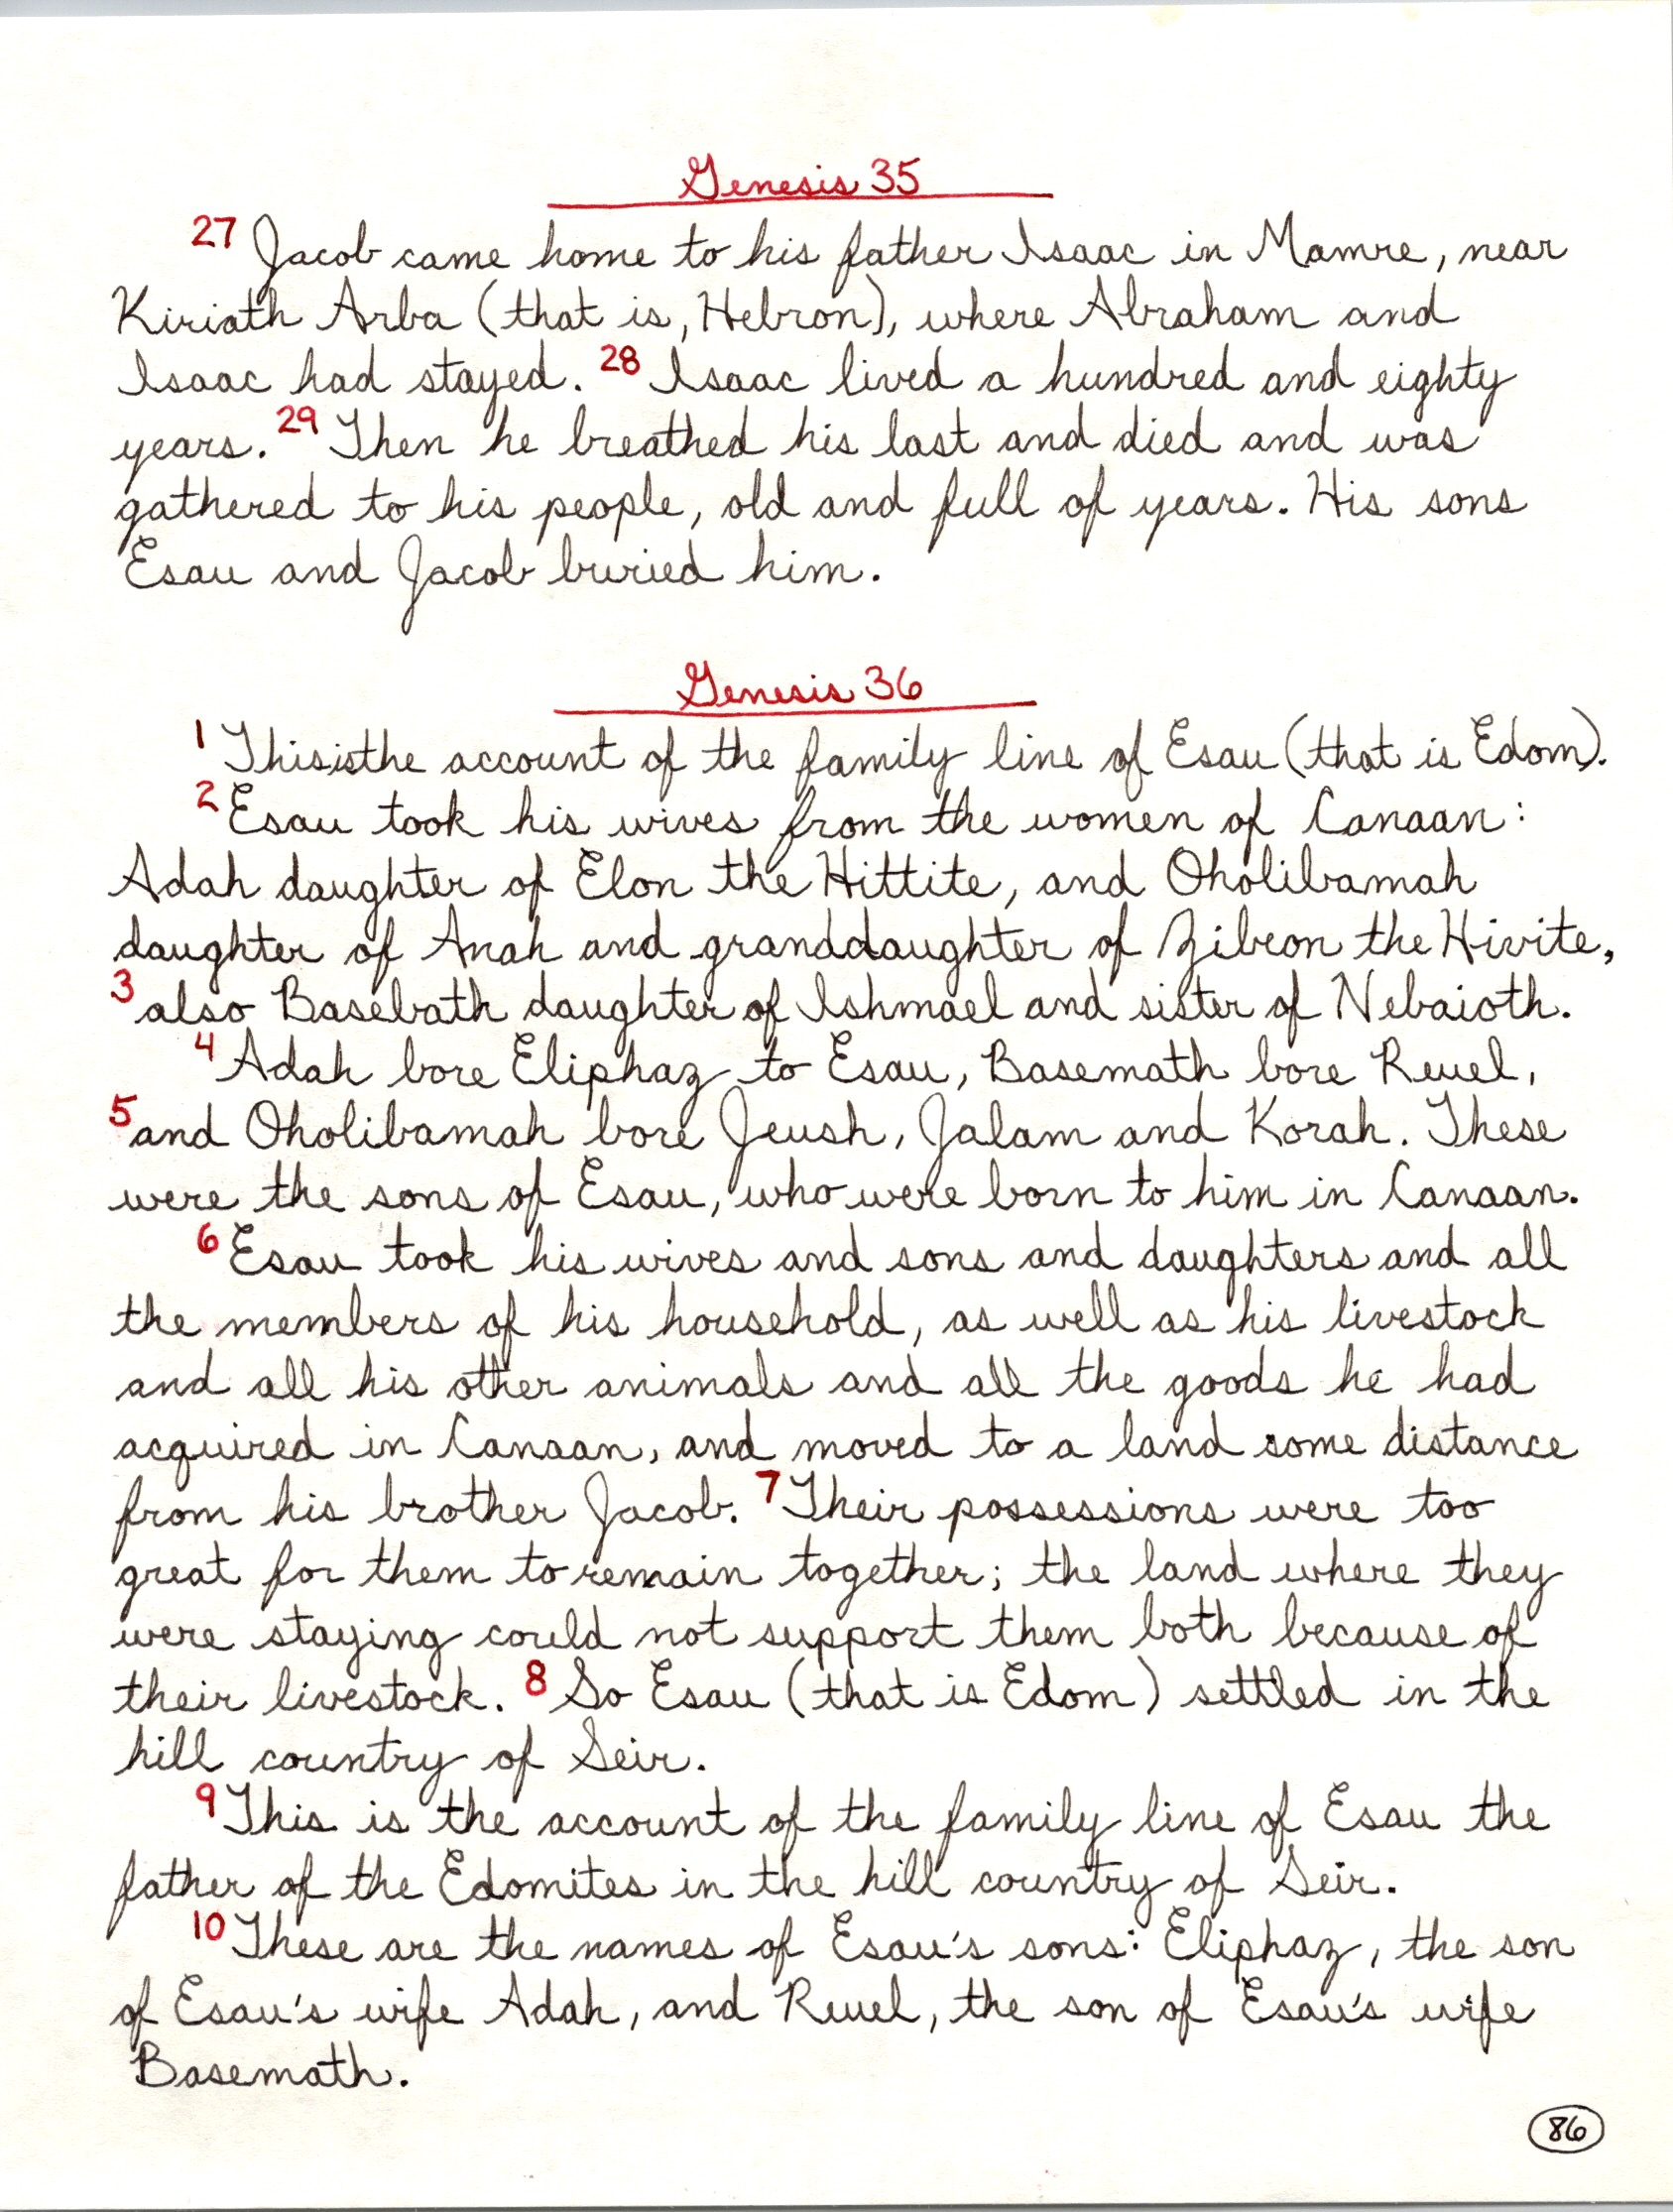 Genesis 35
27 Jacob came home to his father Isaac in Mamre, near
Kiriath Arba (that is, Hebron), where Abraham and
Isaac had stayed. 28 Isaac lived a hundred and eighty
years. 29 Then he breathed his last and died and was
gathered to his people, old and full of years. His sons
Esau and Jacob buried him.
Genesis 36
1 Thisisthe account of the family line of Esau (that is Edom).
2 Esau took his wives from the women of Canaan:
Adah daughter of Elon the Hittite, and Oholibamah
daughter of Anah and granddaughter of Zibeon the Hivite,
3 also Basebath daughter of Ishmael and sister of Nebaioth.
4 Adah bore Eliphaz to Esau, Basemath bore Reuel,
5 and Oholibamah bore Jeush, Jalam and Korah. These
were the sons of Esau, who were born to him in Canaan.
6 Esau took his wives and sons and daughters and all
the members of his household, as well as his livestock
and all his other animals and all the goods he had
acquired in Canaan, and moved to a land some distance
from his brother Jacob. 7 Their possessions were too
great for them to remain together; the land where they
were staying could not support them both because of
their livestock. 8 So Esau (that is Edom) settled in the
hill country of Seir.
9 This is the account of the family line of Esau the
father of the Edomites in the hill country of Seir.
10 These are the names of Esau's sons: Eliphaz, the son
of Esau's wife Adah, and Reuel, the son of Esau's wife
Basemath.
86